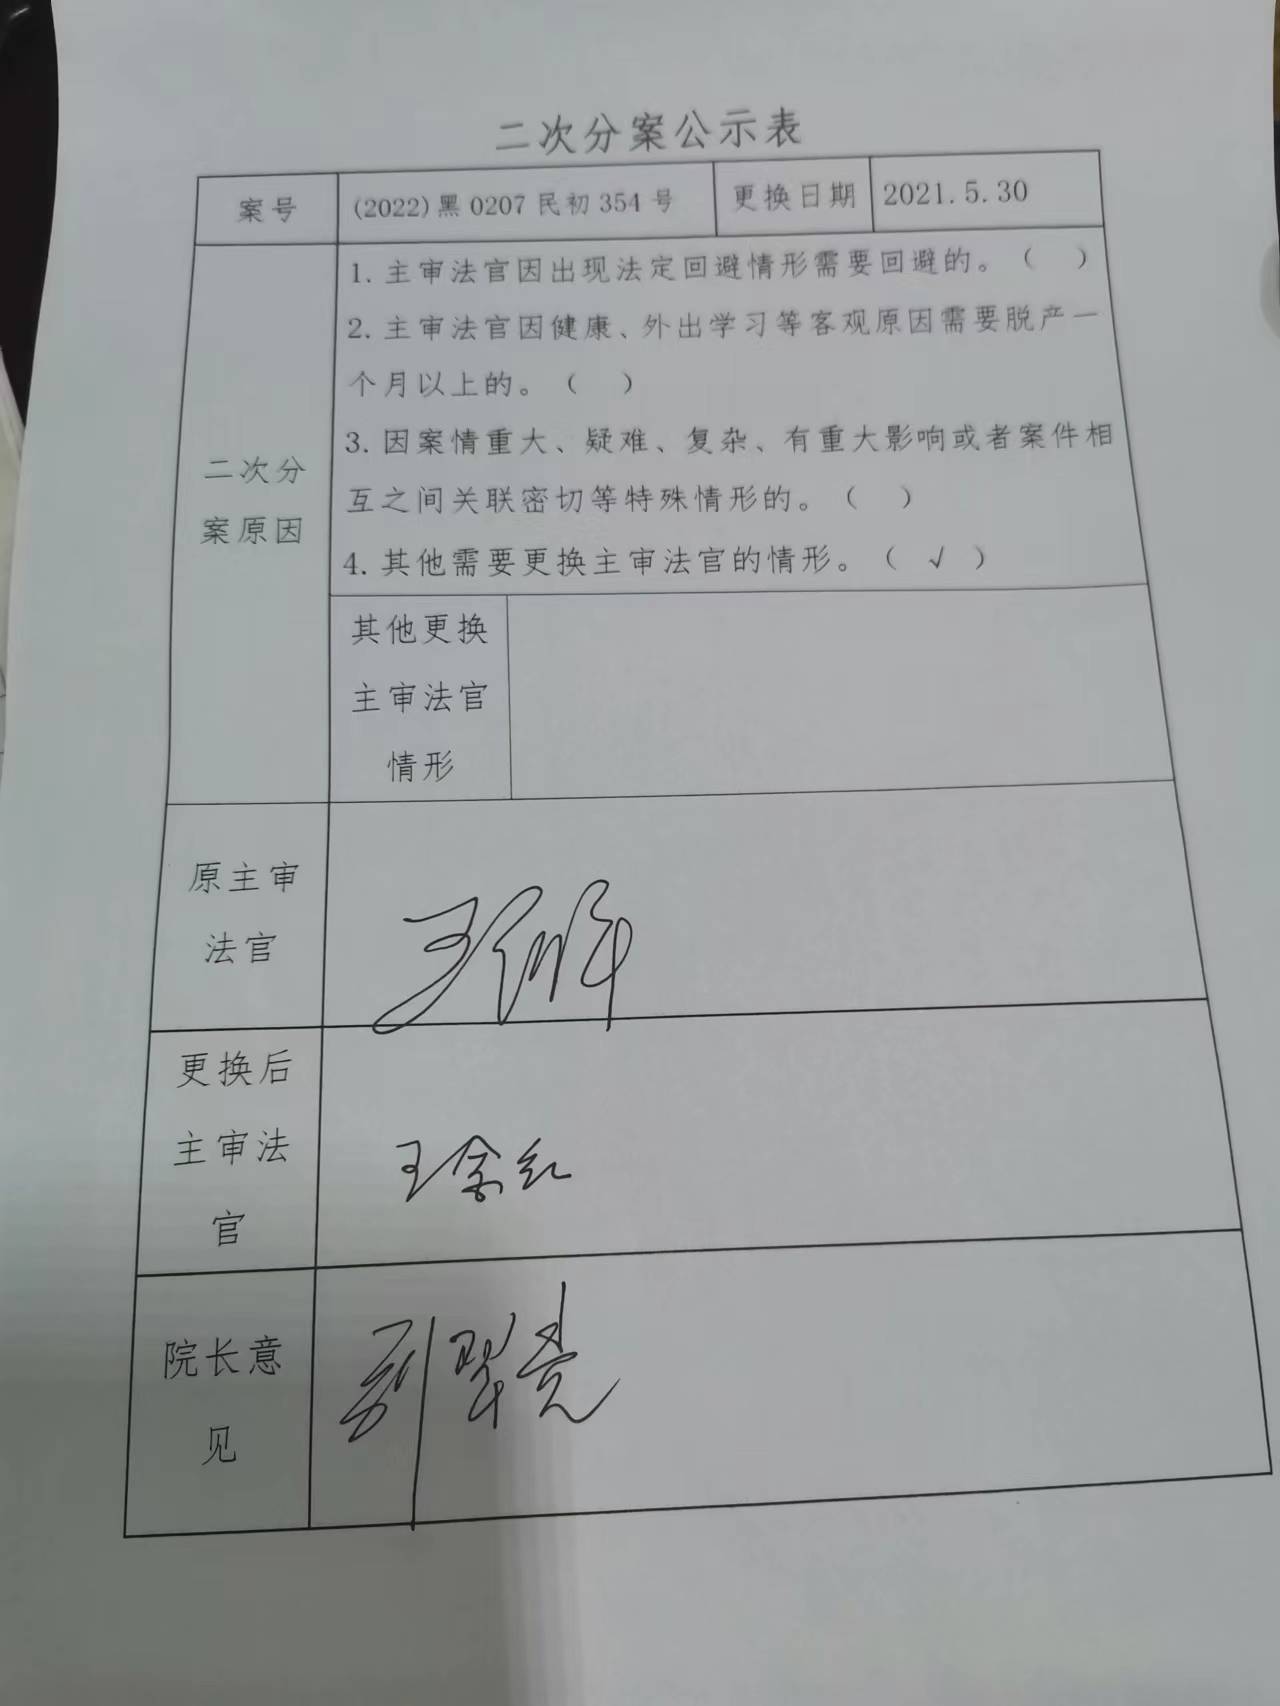 二次分案公示表
案号 (2022)黑0207民初354号 更换日期 2021.5.30
1. 主审法官因出现法定回避情形需要回避的。（ ）
2. 主审法官因健康、外出学习等客观原因需要脱产一
个月以上的。（ ）
3. 因案情重大、疑难、复杂、有重大影响或者案件相
互之间关联密切等特殊情形的。（ ）
4. 其他需要更换主审法官的情形。（ √ ）
二次分
案原因
其他更换
主审法官
情形
原主审
法官
王
更换后
主审法
官
王余红
院长意
见
刘翠亮